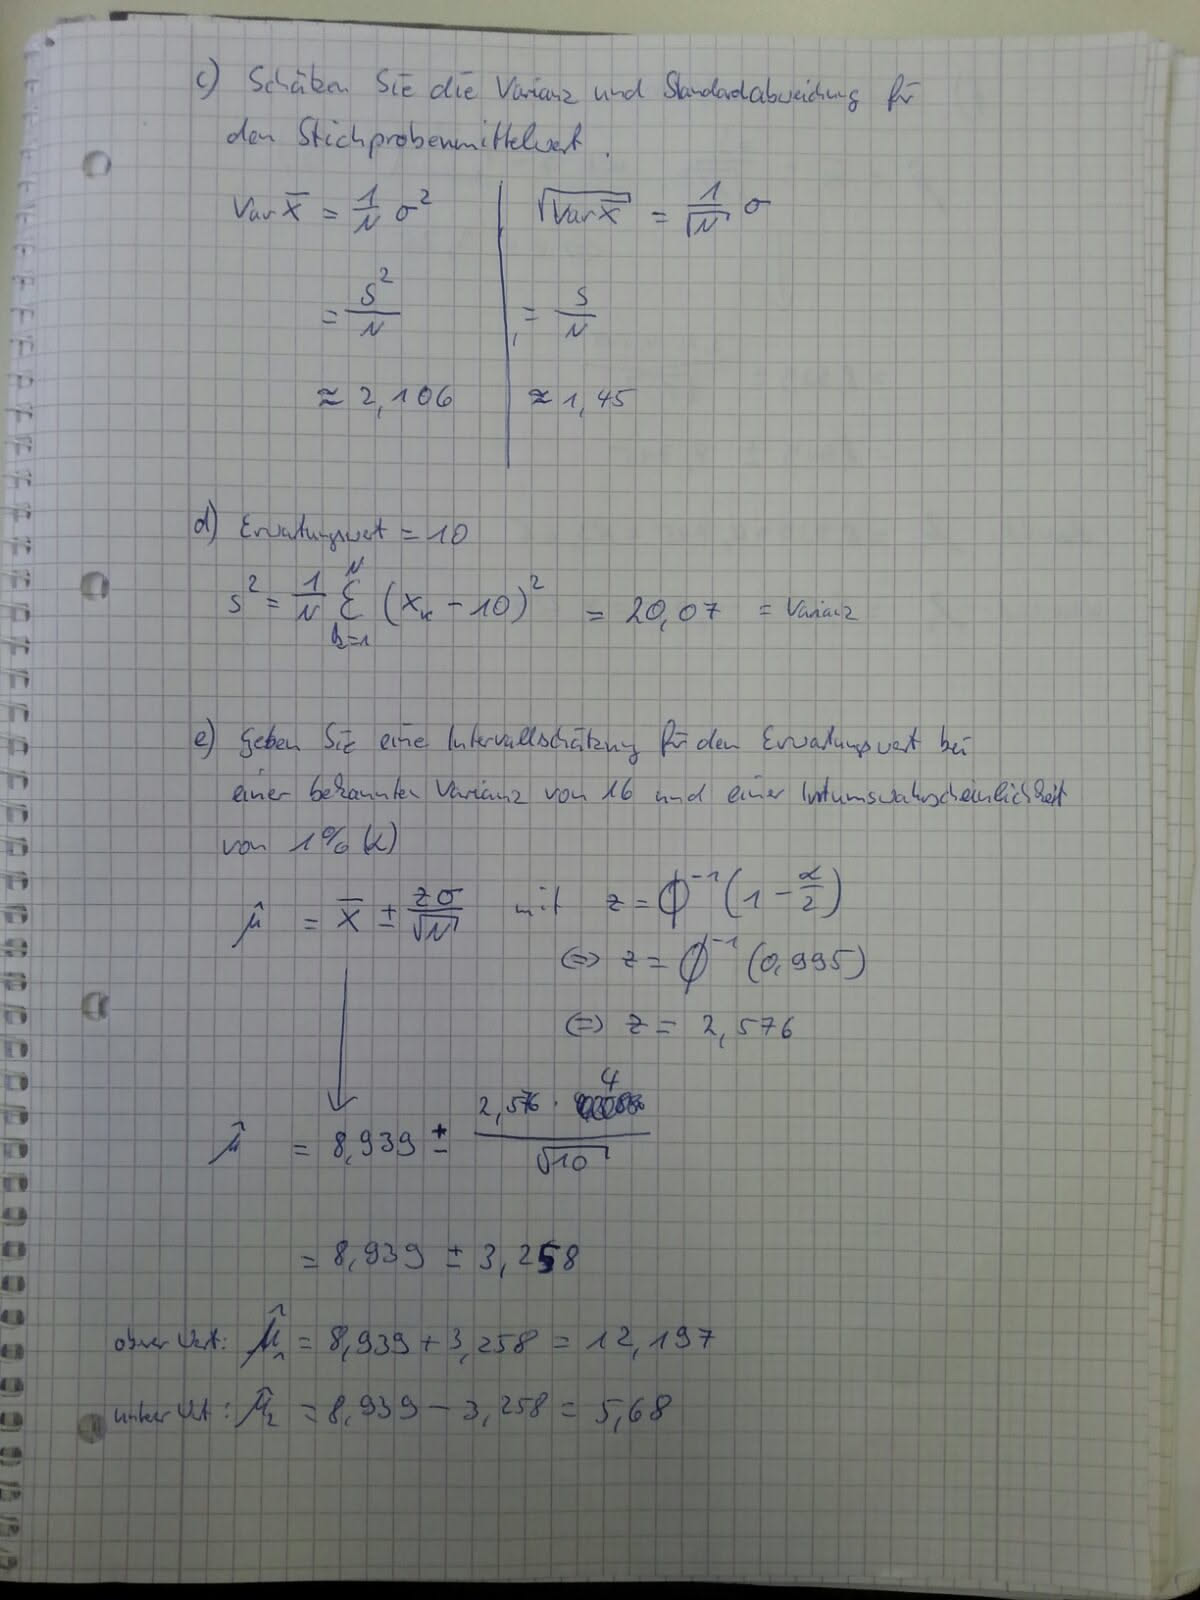 c) Schätzen Sie die Varianz und Standardabweichung für
den Stichprobenmittelwert.
Var X̄ = 1/N σ²
= s²/N
≈ 2,106
√(Var X̄) = 1/√N σ
= s/N
≈ 1,45
d) Erwartungswert = 10
s² = 1/N Σ_{k=1}^{N} (x_k - 10)² = 20,07 = Varianz
e) Geben Sie eine Intervallschätzung für den Erwartungswert bei
einer bekannten Varianz von 16 und einer Irrtumswahrscheinlichkeit
von 1% (α)
μ̂ = X̄ ± zσ/√N mit z = Φ⁻¹(1 - α/2)
(=) z = Φ⁻¹(0,995)
(=) z = 2,576
μ̂ = 8,939 ± 2,576 · 4/√10
= 8,939 ± 3,258
oberer Wert: μ̂₁ = 8,939 + 3,258 = 12,197
unterer Wert: μ̂₂ = 8,939 - 3,258 = 5,68